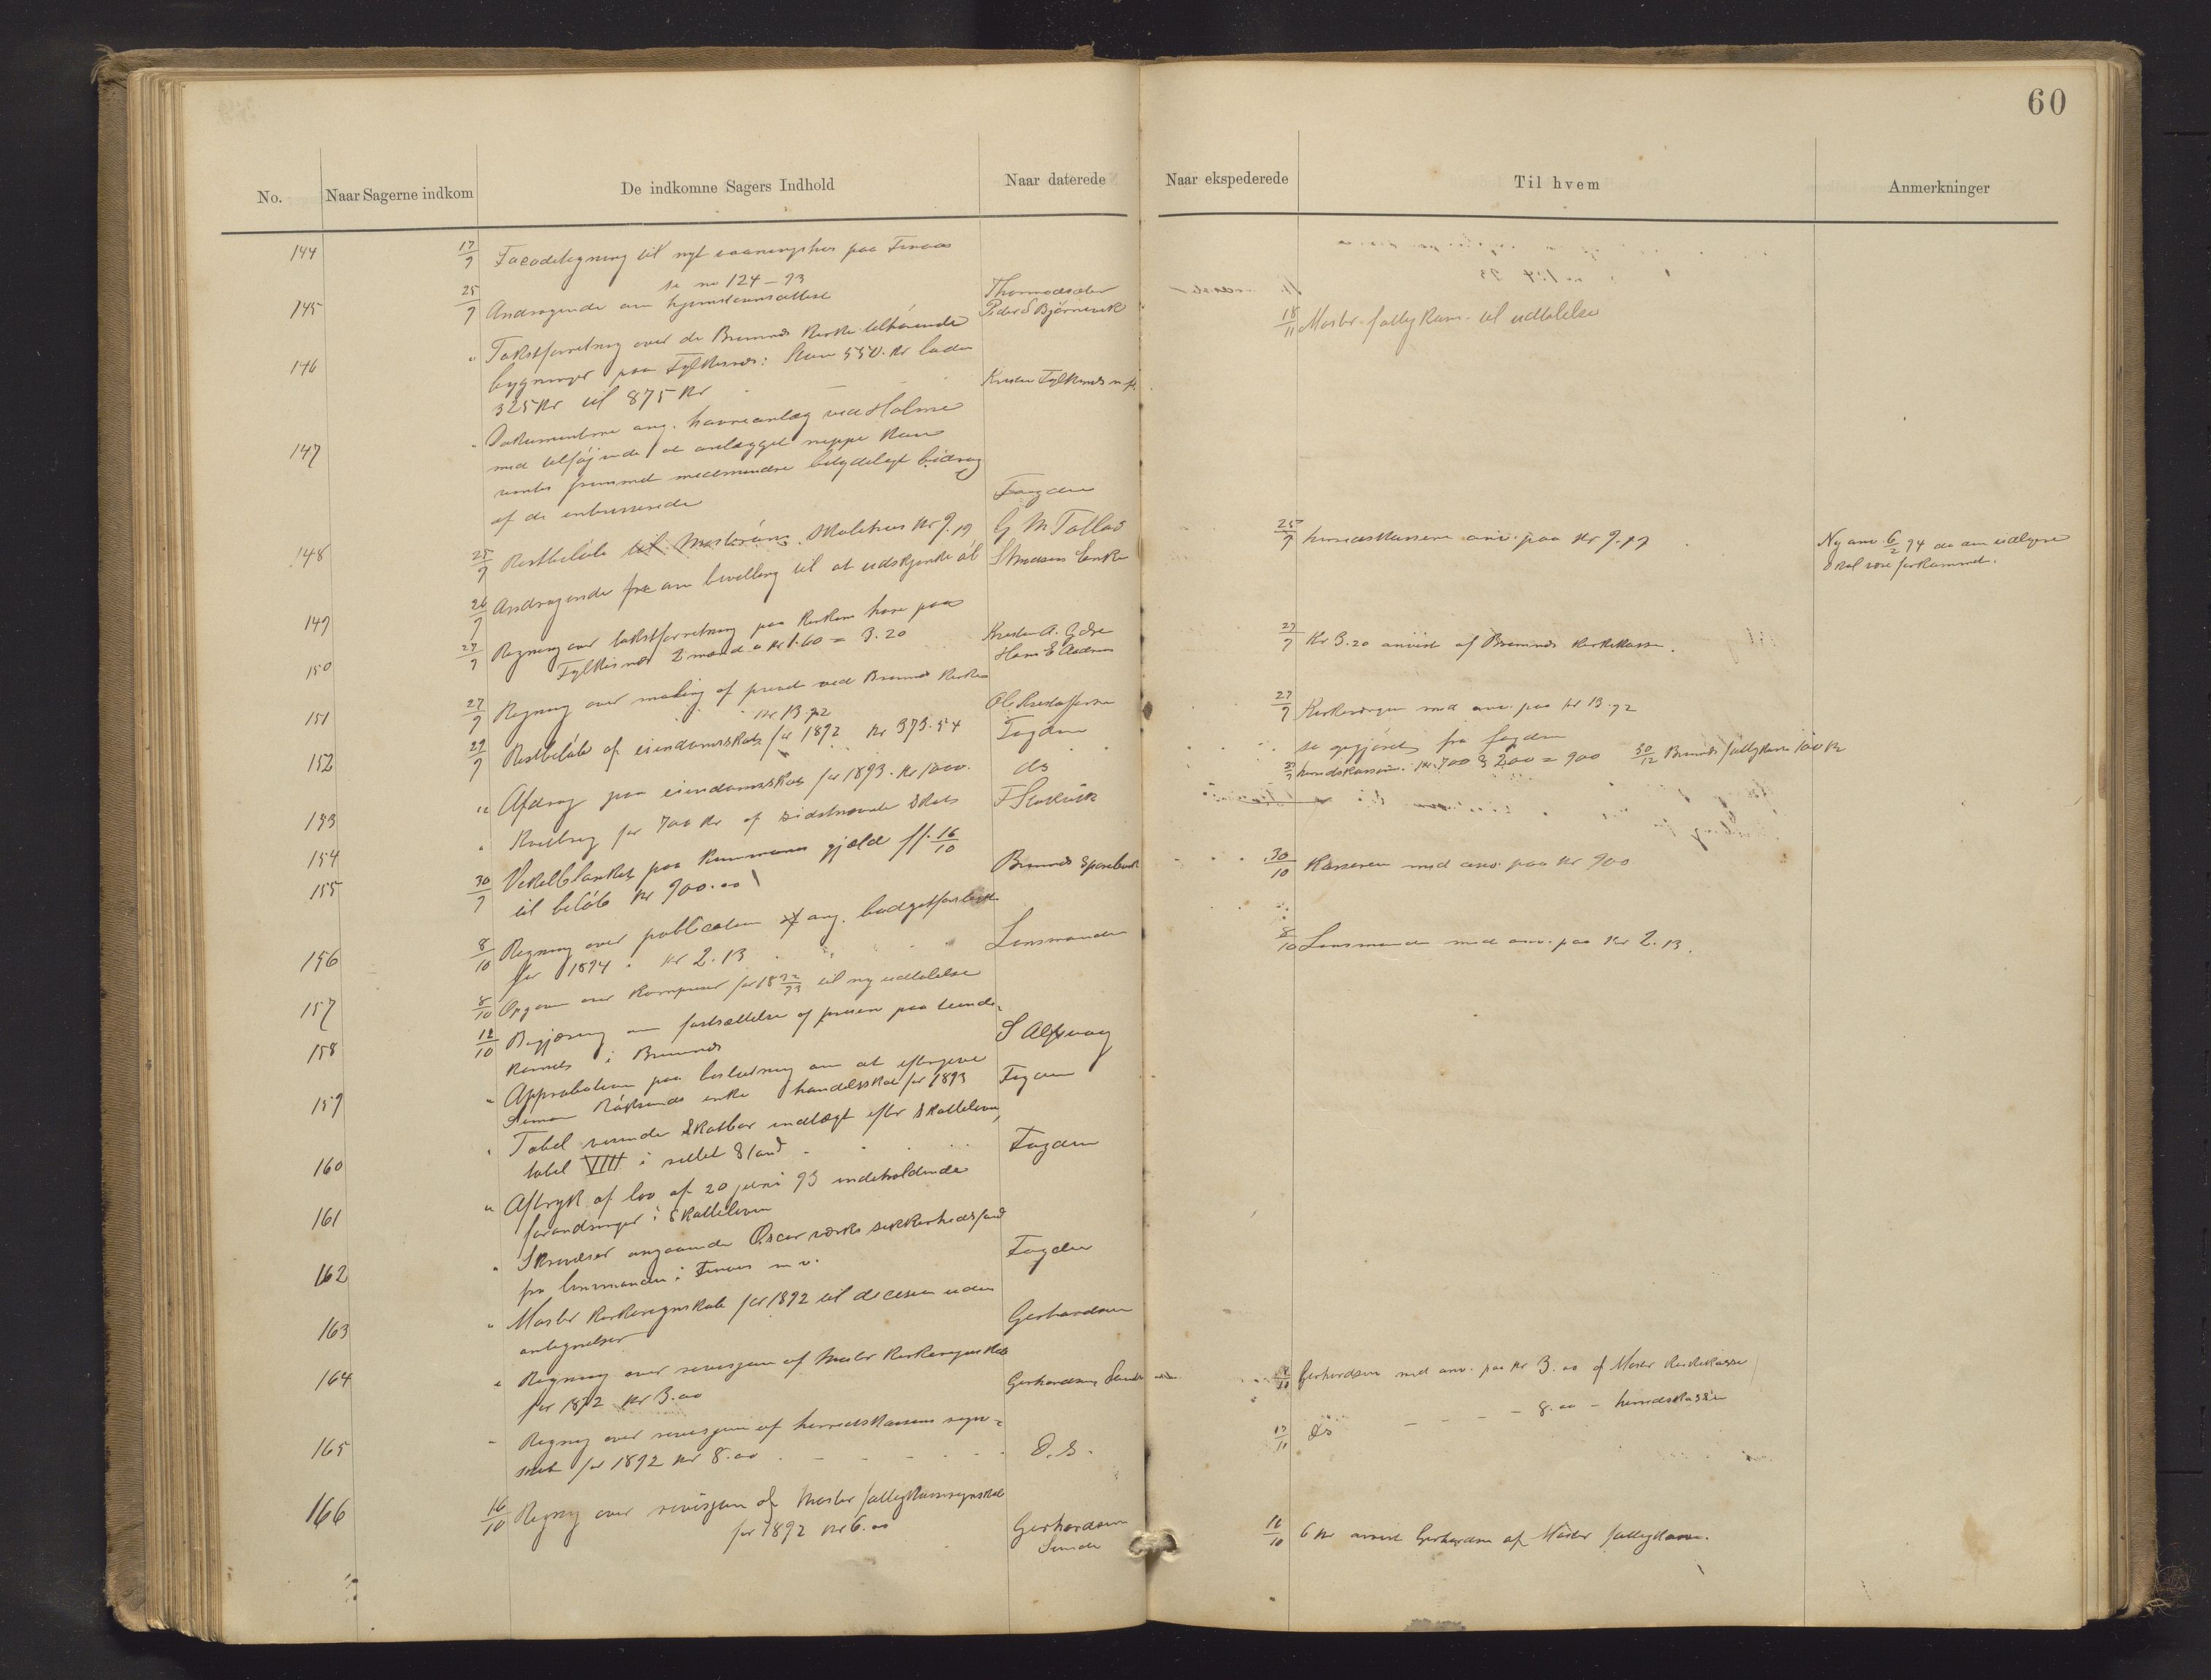 60
No.
Naar Sagerne indkom
De indkomne Sagers Indhold
Naar daterede
Naar ekspederede
Til hvem
Anmerkninger
144 17/9 Facadetegning til nyt vaaningshus paa Finaas
se no 124 – 93
145 25/9 Andragende om hjemstavnsattest
Peder S Bjørnevik
18/11 Moster fattigkom. til udtalelse
146 " Takstforretning over de Bremnæs Kirke tilhørende
bygninger paa Fylkesnæs: Stue 550 Kr lade
325 Kr til 875 Kr
147 " Dokumenterne ang. havneanlæg ved Holme
med tilføjende at anlægget neppe kan
ventes fremmet medmindre betydeligt bidrag
af de interesserede
Fogden
148 25/9 Restbeløb skolehus Kr 9.19
G M Tollas
25/9 herredskassens anv. paa Kr 9.19
Ny anv. 6/2 94 da den
skal være forkommet.
149 26/9 Andragende fra om bevilling til at udskjenke øl
Enke
150 27/9 Regning over takstforretning paa Kirkens huse paa
Fylkesnæs 2 mænd a Kr 1.60 = 3.20
27/9 Kr 3.20 anvist af Bremnæs Kirkekasse.
151 27/9 Regning over maling af præst ved Bremnæs Kirke
Kr 13.92
27/9 Kirkeværgen med anv. paa Kr 13.92
152 29/9 Restbeløb af eiendomsskat for 1892 Kr 373.54
Fogden
se opgjøret fra fogden
153 " Afdrag paa eiendomsskat for 1893. Kr 1000.
do
herredskassen. Kr. 700 & 200 = 900 30/12 Bremnæs fattigkasse 100 Kr
154 " Kvittering for 700 Kr af sidstnævnte skat
155 30/9 Vekselblanket paa Kommunens gjæld ff. 16/10
til beløb Kr 900.00
Bremnæs Sparebank
30/10 Kasseren med anv. paa Kr 900
156 8/10 Regning over publication af ang. budgetforslag
for 1894 Kr 2.13
Lensmanden
8/10 Lensmanden med anv. paa Kr 2.13.
157 8/10 Opgave over Kornpriser for 1892/93 til ny udtalelse
158 12/10 Begjæring om fastsættelse af prisen paa tiende-
kornet i Bremnæs
159 " Approbation paa beslutning om at eftergive
enke handelsskat for 1893
Fogden
160 " Tabel visende skatbar indtægt efter Skatteloven,
tabel VIII i rettet Stand
Fogden
161 " Aftryk af lov af 20 juni 93 indeholdende
forandringer i Skatteloven
162 " Skrivelser angaaende Oscar værks sikkerhedsfond
fra lensmanden i Finaas m v.
Fogden
163 " Moster Kirkeregnskab for 1892 til decision uden
antegnelser
Gerhardsen
164 " Regning over revisjon af Moster Kirkeregnskab
for 1892 Kr 3.00
Gerhardsen
Gerhardsen med anv. paa Kr 3.00 af Moster Kirkekasse
165 " Regning over revisjon af herredskassens regn-
skab for 1892 Kr 8.00
D. S.
17/10 do – – – – 8.00 – herredskassen
166 16/10 Regning over revisjon af Moster fattigkasseregnskab
for 1892 Kr 6.00
Gerhardsen
Sunde
16/10 6 Kr anvist Gerhardsen af Moster fattigkasse.